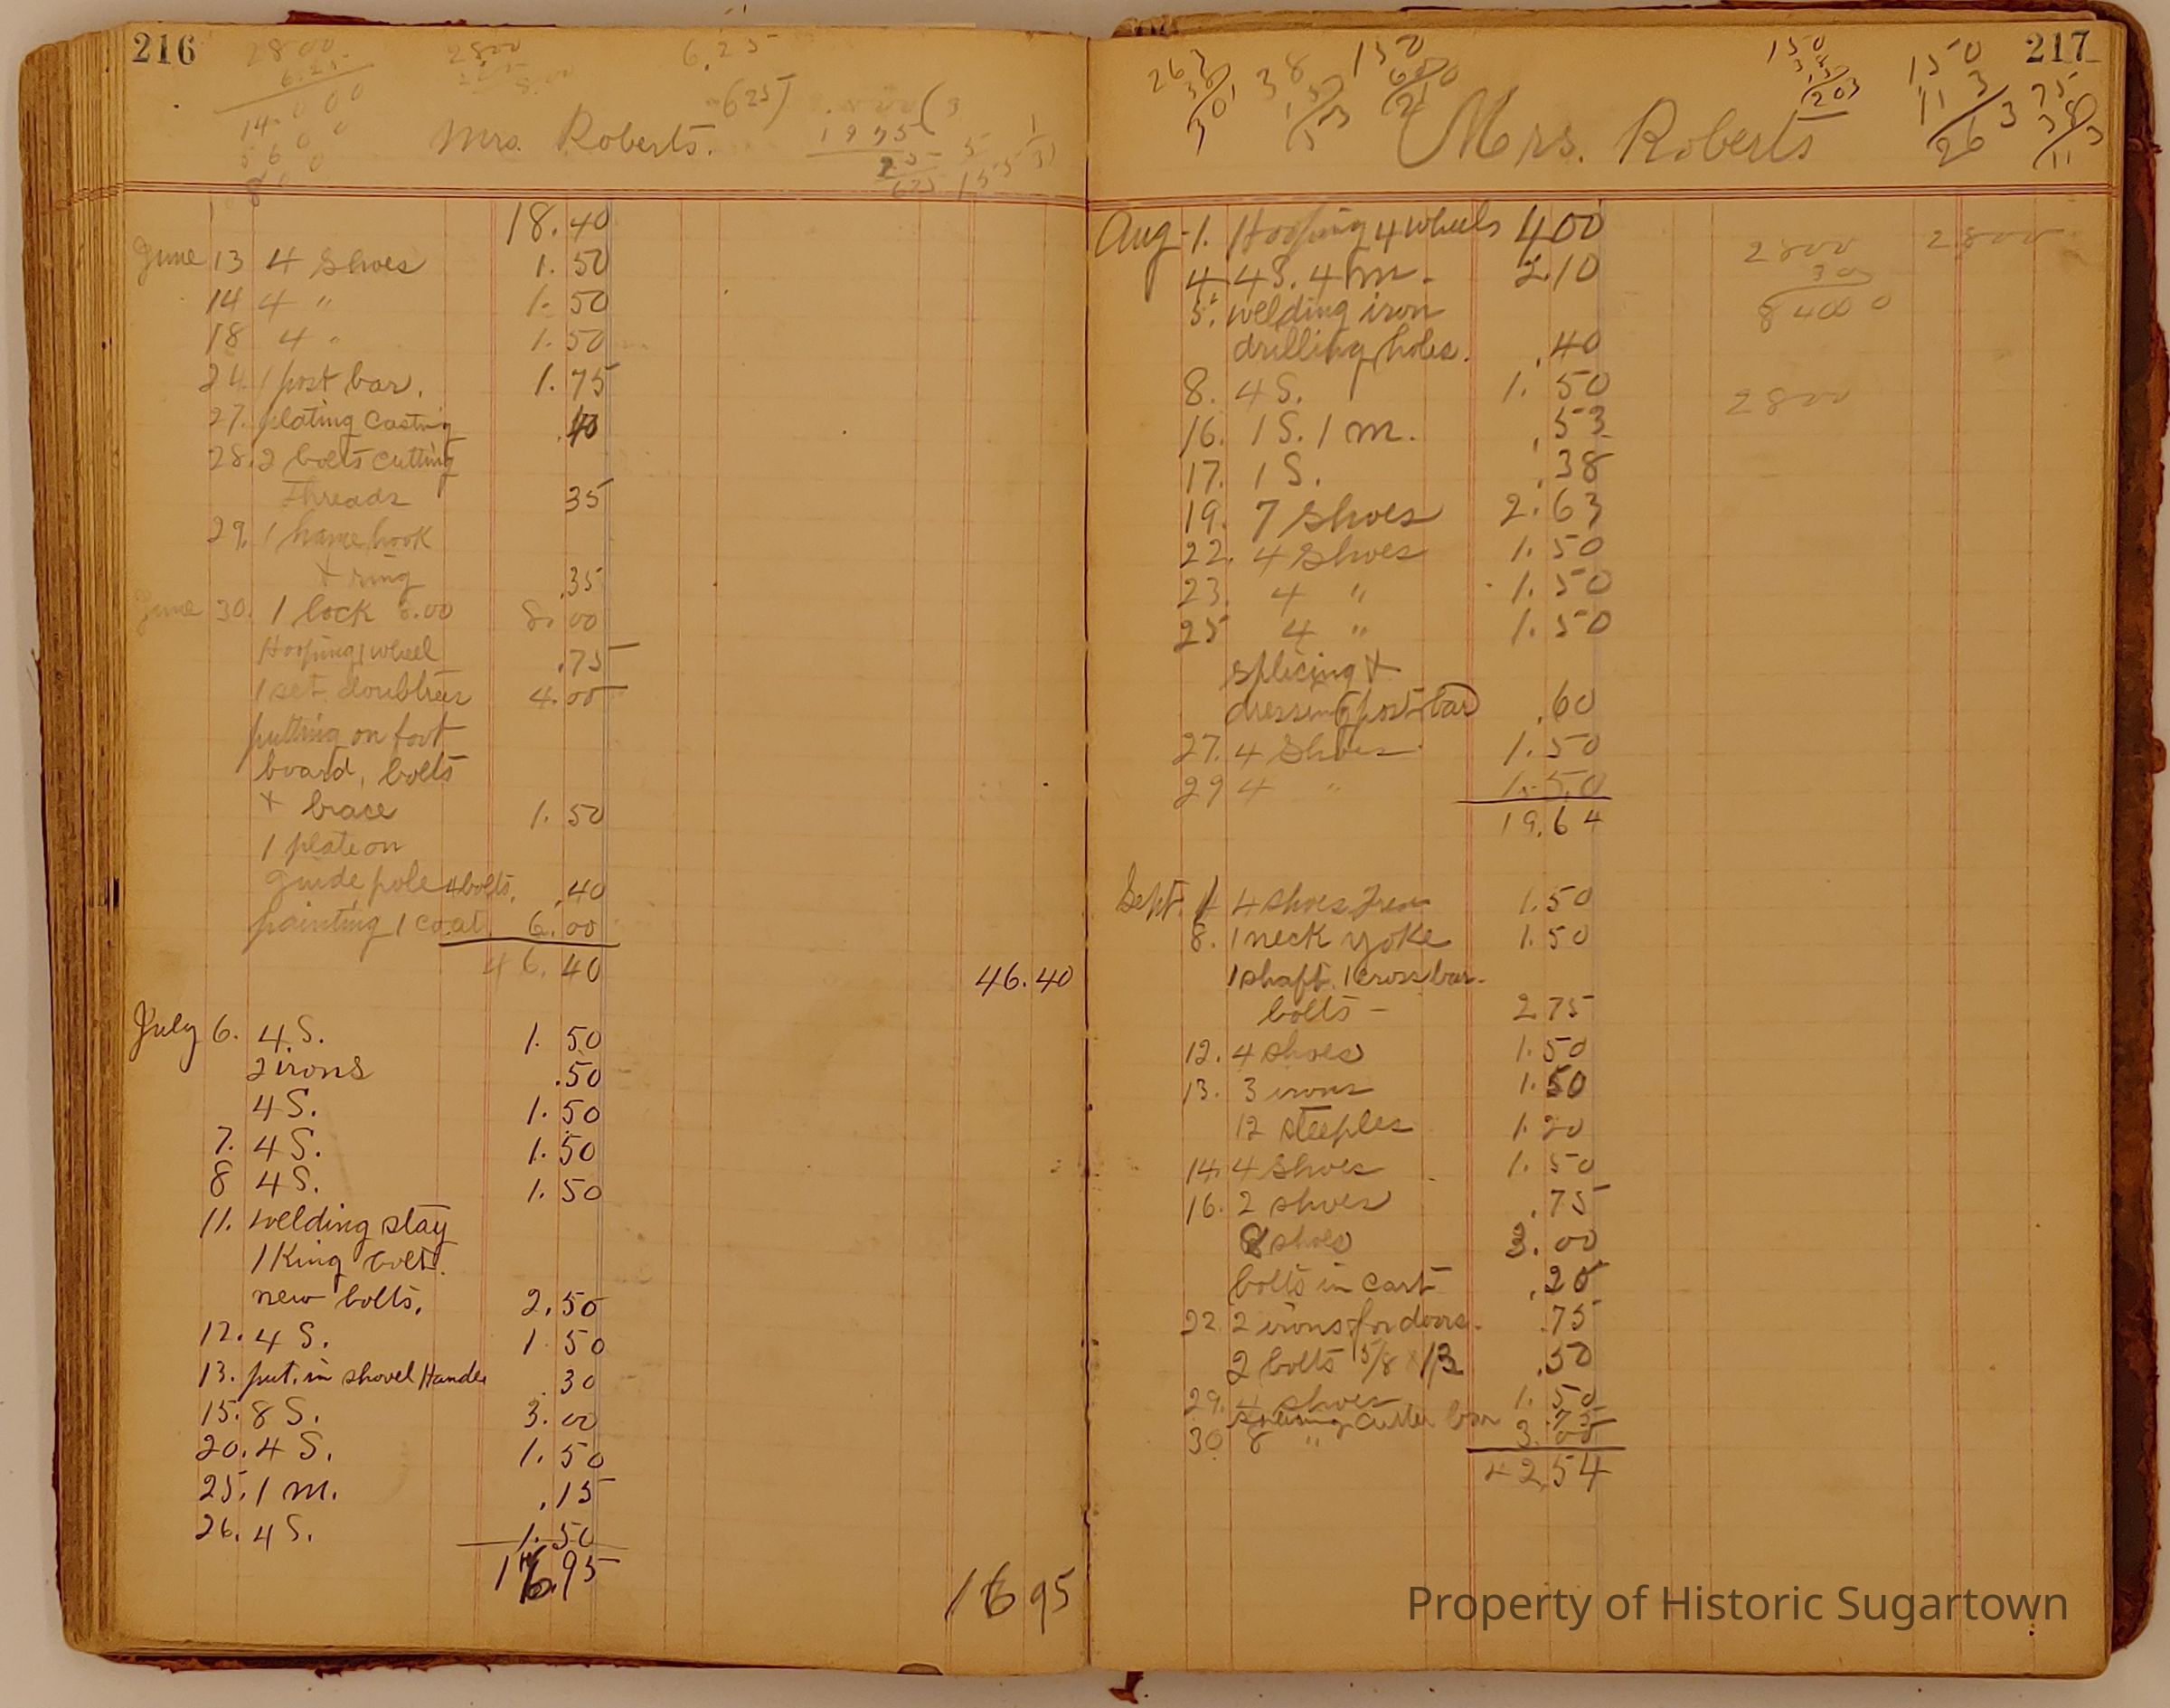 216
2800
6.25
14.000
5600
800
2800
6.25
625)
1935
25
625
Mrs. Roberts.
18.40
June 13 4 Shoes 1.50
14 4 " 1.50
18 4 " 1.50
24. 1 post bar. 1.75
27. plating casting .40
28. 2 bolts cutting
threads 35
29. 1 hame hook
+ ring .35
June 30. 1 lock 8.00 8.00
Hooping 1 wheel .75
1 set doubltrees 4.00
putting on foot
board, bolts
+ brace 1.50
1 plate on
guide pole 4 bolts. .40
painting 1 coat 6.00
46.40 46.40
July 6. 4. S. 1.50
2 irons .50
4 S. 1.50
7. 4 S. 1.50
8 4 S. 1.50
11. welding stay
1 King bolt.
new bolts. 2.50
12. 4 S. 1 50
13. put. in shovel Handle .30
15. 8 S. 3.00
20. 4 S. 1.50
25. 1 m. .15
26. 4 S. 1.50
16.95 16 95
217
263
38
301
38
150
60
210
150
203
150
113
263
75
38
113
Mrs. Roberts
Aug. 1. Hooping 4 wheels 400
4 4 S. 4 m. 2.10
5. welding iron
drilling holes. .40
8. 4 S. 1.50
16. 1 S. 1 m. .53
17. 1 S. .38
19. 7 Shoes 2.63
22. 4 Shoes 1.50
23. 4 " 1.50
25 4 " 1.50
splicing +
dressing post bar .60
27. 4 Shoes 1.50
29 4 " 1.50
19.64
2800
30
84000
2800
2800
Sept. 1 4 shoes 1.50
8. 1 neck yoke 1.50
1 shaft. 1 cross bar.
bolts - 2 75
12. 4 shoes 1.50
13. 3 irons 1.50
12 steeples 1.20
14. 4 Shoes 1.50
16. 2 shoes .75
8 shoes 3.00
bolts in cart .20
22 2 irons for doors. .75
2 bolts 5/8 .50
29. 4 shoes 1.50
cutter .75
30 8 " 3.00
2.54
Property of Historic Sugartown